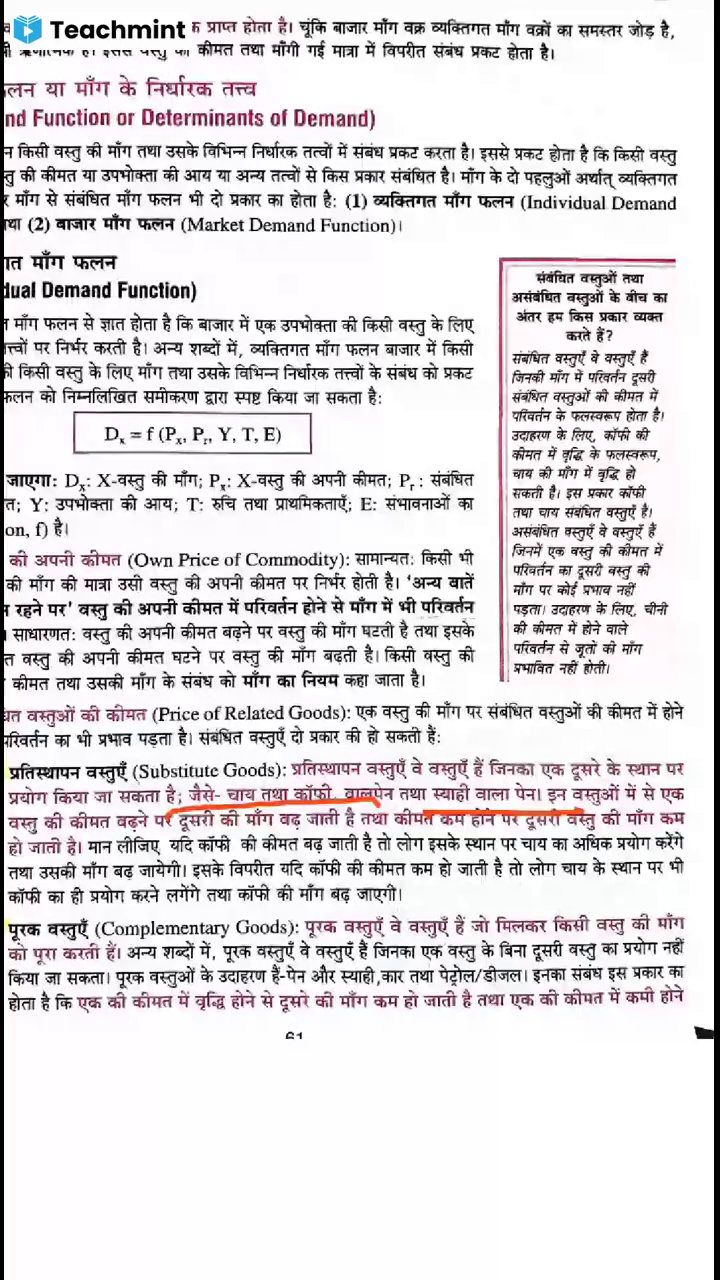 Teachmint
क प्राप्त होता है। चूंकि बाजार माँग वक्र व्यक्तिगत माँग वक्रों का समस्तर जोड़ है,
ऋणात्मक है। इससे वस्तु की कीमत तथा माँगी गई मात्रा में विपरीत संबंध प्रकट होता है।
लन या माँग के निर्धारक तत्त्व
nd Function or Determinants of Demand)
न किसी वस्तु की माँग तथा उसके विभिन्न निर्धारक तत्वों में संबंध प्रकट करता है। इससे प्रकट होता है कि किसी वस्तु
तु की कीमत या उपभोक्ता की आय या अन्य तत्वों से किस प्रकार संबंधित है। माँग के दो पहलुओं अर्थात् व्यक्तिगत
र माँग से संबंधित माँग फलन भी दो प्रकार का होता है: (1) व्यक्तिगत माँग फलन (Individual Demand
था (2) बाजार माँग फलन (Market Demand Function)।
गत माँग फलन
dual Demand Function)
त माँग फलन से ज्ञात होता है कि बाजार में एक उपभोक्ता की किसी वस्तु के लिए
त्त्वों पर निर्भर करती है। अन्य शब्दों में, व्यक्तिगत माँग फलन बाजार में किसी
की किसी वस्तु के लिए माँग तथा उसके विभिन्न निर्धारक तत्त्वों के संबंध को प्रकट
फलन को निम्नलिखित समीकरण द्वारा स्पष्ट किया जा सकता है:
Dx = f (Px, Pr, Y, T, E)
जाएगा: Dx: X-वस्तु की माँग; Px: X-वस्तु की अपनी कीमत; Pr : संबंधित
त; Y: उपभोक्ता की आय; T: रुचि तथा प्राथमिकताएँ; E: संभावनाओं का
on, f) है।
की अपनी कीमत (Own Price of Commodity): सामान्यतः किसी भी
की माँग की मात्रा उसी वस्तु की अपनी कीमत पर निर्भर होती है। 'अन्य बातें
न रहने पर' वस्तु की अपनी कीमत में परिवर्तन होने से माँग में भी परिवर्तन
। साधारणतः वस्तु की अपनी कीमत बढ़ने पर वस्तु की माँग घटती है तथा इसके
त वस्तु की अपनी कीमत घटने पर वस्तु की माँग बढ़ती है। किसी वस्तु की
कीमत तथा उसकी माँग के संबंध को माँग का नियम कहा जाता है।
संबंधित वस्तुओं तथा
असंबंधित वस्तुओं के बीच का
अंतर हम किस प्रकार व्यक्त
करते हैं?
संबंधित वस्तुएँ वे वस्तुएँ हैं
जिनकी माँग में परिवर्तन दूसरी
संबंधित वस्तुओं की कीमत में
परिवर्तन के फलस्वरूप होता है।
उदाहरण के लिए, कॉफी की
कीमत में वृद्धि के फलस्वरूप,
चाय की माँग में वृद्धि हो
सकती है। इस प्रकार कॉफी
तथा चाय संबंधित वस्तुएँ है।
असंबंधित वस्तुएँ वे वस्तुएँ हैं
जिनमें एक वस्तु की कीमत में
परिवर्तन का दूसरी वस्तु की
माँग पर कोई प्रभाव नहीं
पड़ता। उदाहरण के लिए, चीनी
की कीमत में होने वाले
परिवर्तन से जूतों की माँग
प्रभावित नहीं होती।
धित वस्तुओं की कीमत (Price of Related Goods): एक वस्तु की माँग पर संबंधित वस्तुओं की कीमत में होने
परिवर्तन का भी प्रभाव पड़ता है। संबंधित वस्तुएँ दो प्रकार की हो सकती हैं:
प्रतिस्थापन वस्तुएँ (Substitute Goods): प्रतिस्थापन वस्तुएँ वे वस्तुएँ हैं जिनका एक दूसरे के स्थान पर
प्रयोग किया जा सकता है; जैसे- चाय तथा कॉफी, बालपेन तथा स्याही वाला पेन। इन वस्तुओं में से एक
वस्तु की कीमत बढ़ने पर दूसरी की माँग बढ़ जाती है तथा कीमत कम होने पर दूसरी वस्तु की माँग कम
हो जाती है। मान लीजिए यदि कॉफी की कीमत बढ़ जाती है तो लोग इसके स्थान पर चाय का अधिक प्रयोग करेंगे
तथा उसकी माँग बढ़ जायेगी। इसके विपरीत यदि कॉफी की कीमत कम हो जाती है तो लोग चाय के स्थान पर भी
कॉफी का ही प्रयोग करने लगेंगे तथा कॉफी की माँग बढ़ जाएगी।
पूरक वस्तुएँ (Complementary Goods): पूरक वस्तुएँ वे वस्तुएँ हैं जो मिलकर किसी वस्तु की माँग
को पूरा करती हैं। अन्य शब्दों में, पूरक वस्तुएँ वे वस्तुएँ हैं जिनका एक वस्तु के बिना दूसरी वस्तु का प्रयोग नहीं
किया जा सकता। पूरक वस्तुओं के उदाहरण हैं-पेन और स्याही ,कार तथा पेट्रोल/डीजल। इनका संबंध इस प्रकार का
होता है कि एक की कीमत में वृद्धि होने से दूसरे की माँग कम हो जाती है तथा एक की कीमत में कमी होने
61